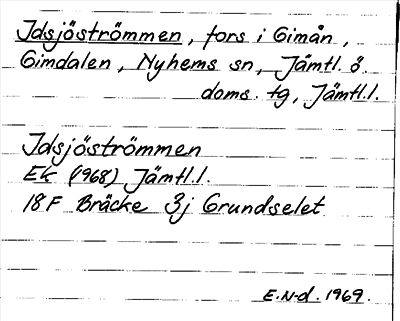 Idsjöströmmen, fors i Gimån,
Gimdalen, Nyhems sn, Jämtl. ö.
doms. tg, Jämtl.l.
Idsjöströmmen
EK (1968) Jämtl.l.
18F Bräcke 3j Grundselet
E.N-d. 1969.